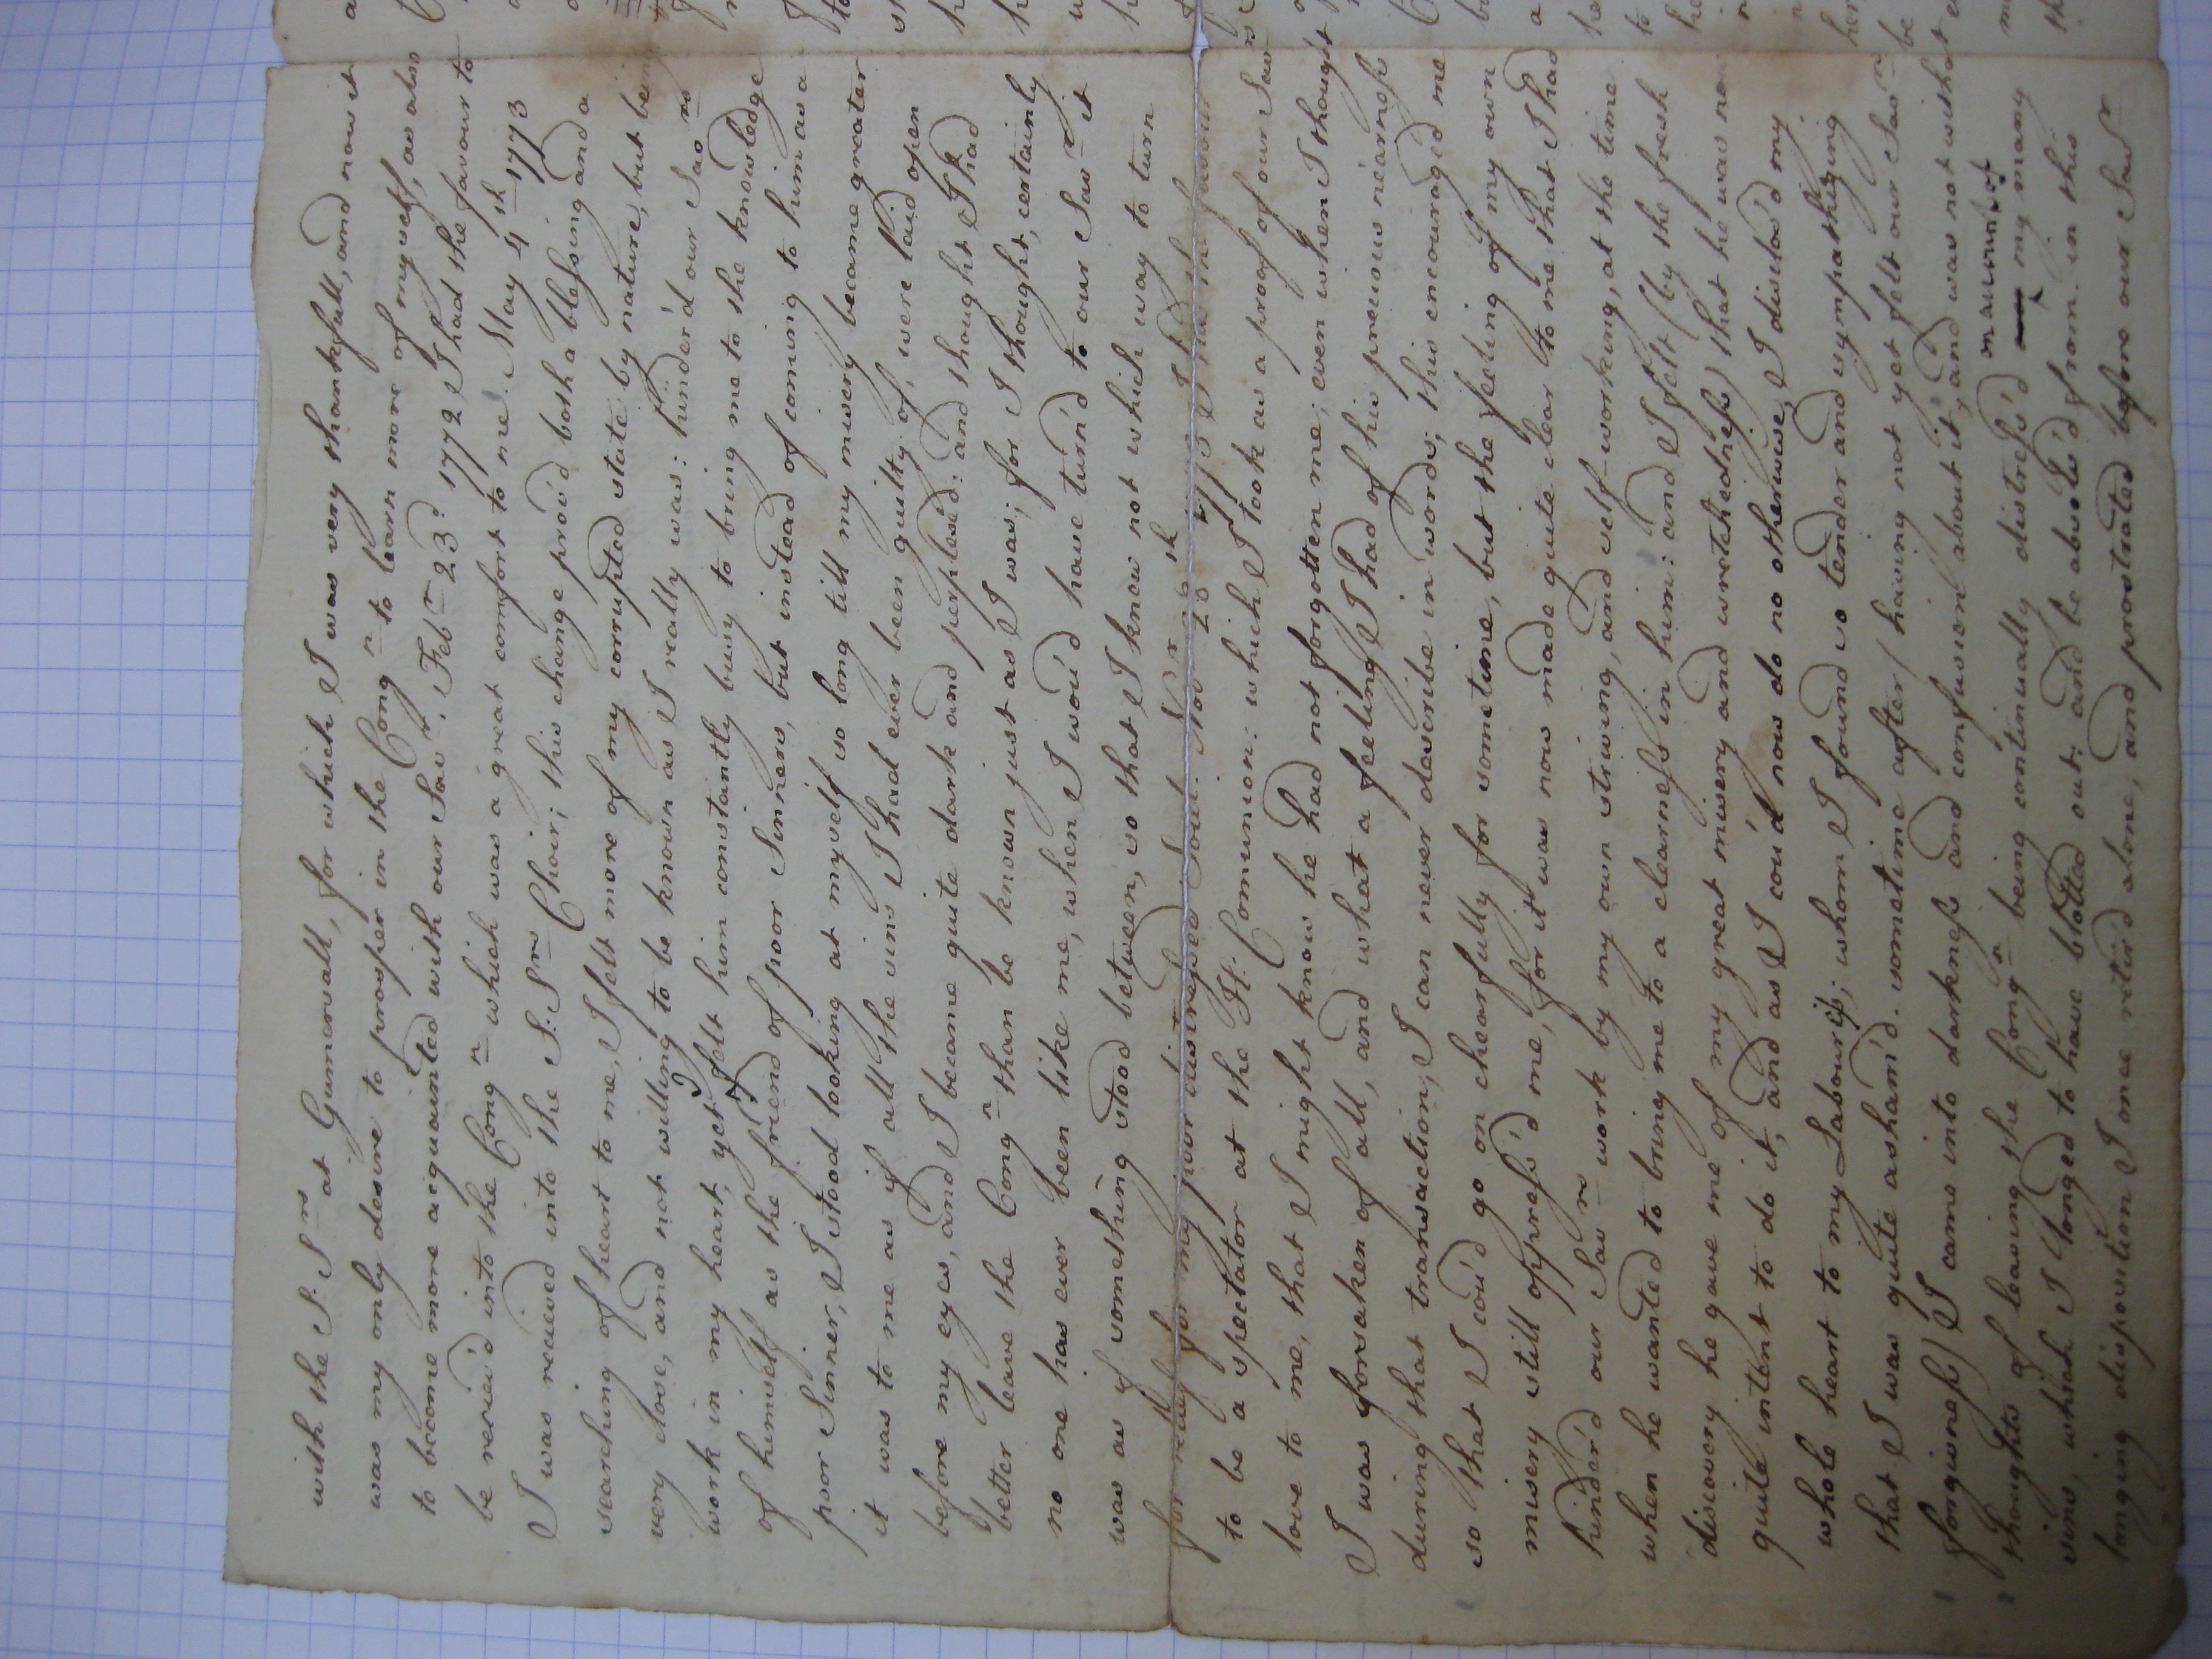 with the S: Srs at Gumersall, for which I was very thankfull, and now it
was my only desire to prosper in the Congn to learn more of myself, as also
to become more acquainted with our Savr. Febr 23d 1772 I had the favour to
be reciev'd into the Congn which was a great comfort to me. May 4th 1773
I was recieved into the S: Srs Choir; this change prov'd both a blessing and a
searching of heart to me, I felt more of my corrupted state by nature, but being
very close, and not willing to be known as I really was: hinder'd our Savrs
work in my heart, yet I felt him constantly busy to bring me to the knowledge
of himself as the friend of poor Sinners, but instead of coming to him as a
poor Sinner, I stood looking at myself so long till my misery became greater
it was to me as if all the sins I had ever been guilty of, were laid open
before my eyes, and I became quite dark and perplexed: and thought I had
better leave the Congn than be known just as I was; for I thought, certainly
no one has ever been like me, when I wou'd have turn'd to our Savr it
was as if something stood between, so that I knew not which way to turn
for relief for my poor distressed Soul. Novr 28th 1773 I had the favour
to be a spectator at the H: Comunion: which I took as a proof of our Savrs
love to me, that I might know he had not forgotten me; even when I thought
I was forsaken of all, and what a feeling I had of his precious nearness
during that transaction, I can never describe in words; this encouraged me
so that I cou'd go on chearfully for sometime, but the feeling of my own
misery still oppress'd me, for it was now made quite clear to me that I had
hinder'd our Savrs work by my own striving, and self-working, at the time
when he wanted to bring me to a clearness in him: and I felt (by the fresh
discovery he gave me of my great misery and wretchedness) that he was now
quite intent to do it, and as I cou'd now do no otherwise, I disclos'd my
whole heart to my Labourers; whom I found so tender and sympathizing
that I was quite asham'd. sometime after (having not yet felt our Savrs
forgivness) I came into darkness and confusion about it, and was not without
thoughts of leaving the Congn being continually distress'd on account of my many
sins, which I longed to have blotted out: and be absolv'd from. in this
longing disposition I once retir'd alone, and prostrated before our Savr